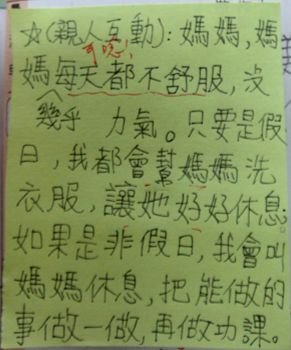 ☆(親人互動):媽媽,媽
媽每天都不舒服,沒
幾乎 力氣。只要是假
日,我都會幫媽媽洗
衣服,讓她好好休息。
如果是非假日,我會叫
媽媽休息,把能做的
事做一做,再做功課。